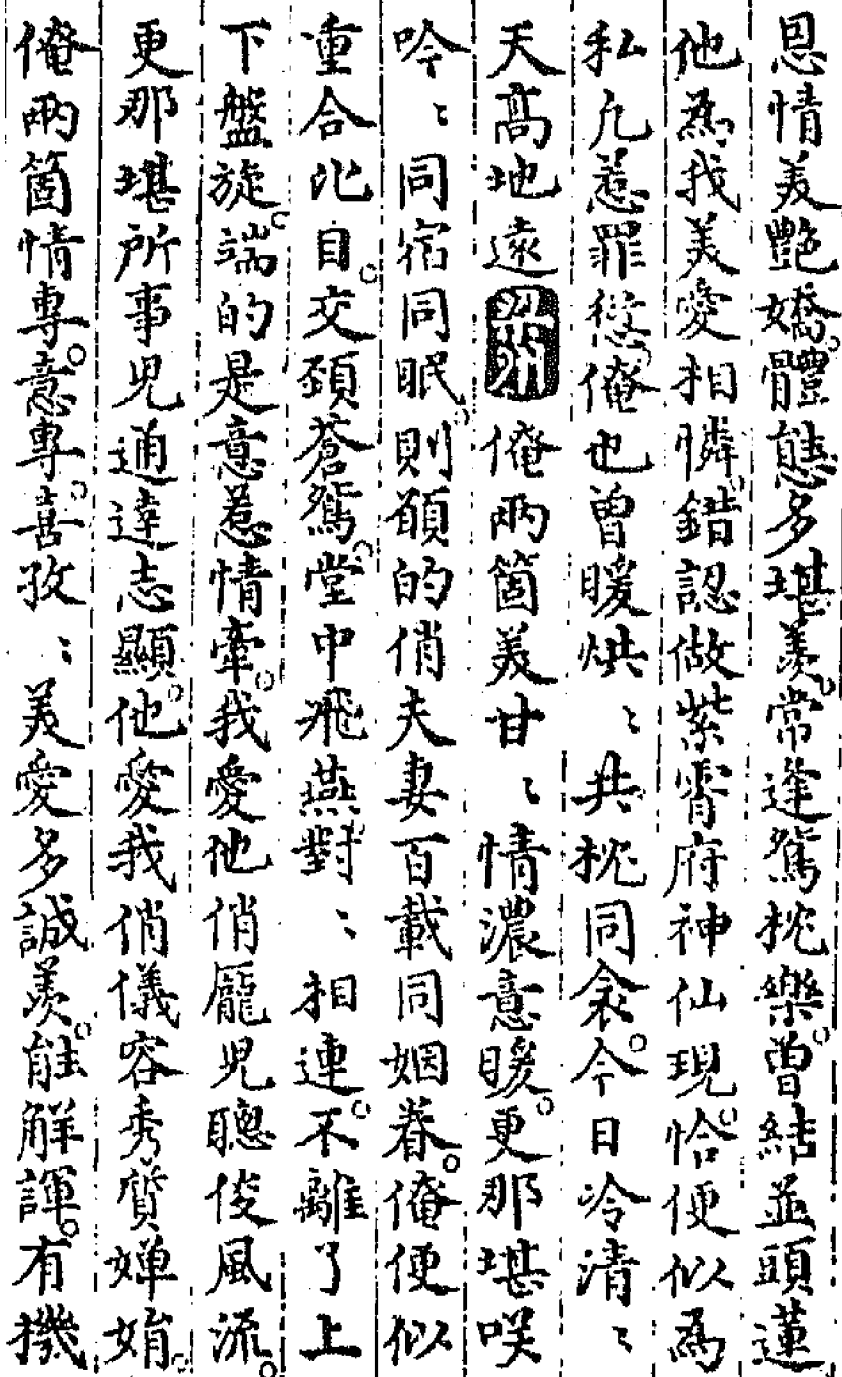 恩情美艷嬌。體態多堪羨。常逢鴛枕樂。曾結並頭蓮
他為我美愛相憐。錯認做紫霄府神仙現。恰便似為
私凢惹罪愆。俺也曾暖烘〻共枕同衾。今日冷清〻
天高地遠 俺兩箇美甘〻情濃意暖。更那堪咲
吟〻同宿同眠。則願的俏夫妻百載同姻眷。俺便似
重合比目。交頸蒼鴛。堂中飛燕對〻相連。不離了上
下盤旋。端的是意惹情牽。我愛他俏龐兒聰俊風流。
更那堪所事兒通達志顯。他愛我俏儀容秀質嬋娟。
俺兩箇情專。意專。喜孜〻美愛多誠羨。能解諢。有機